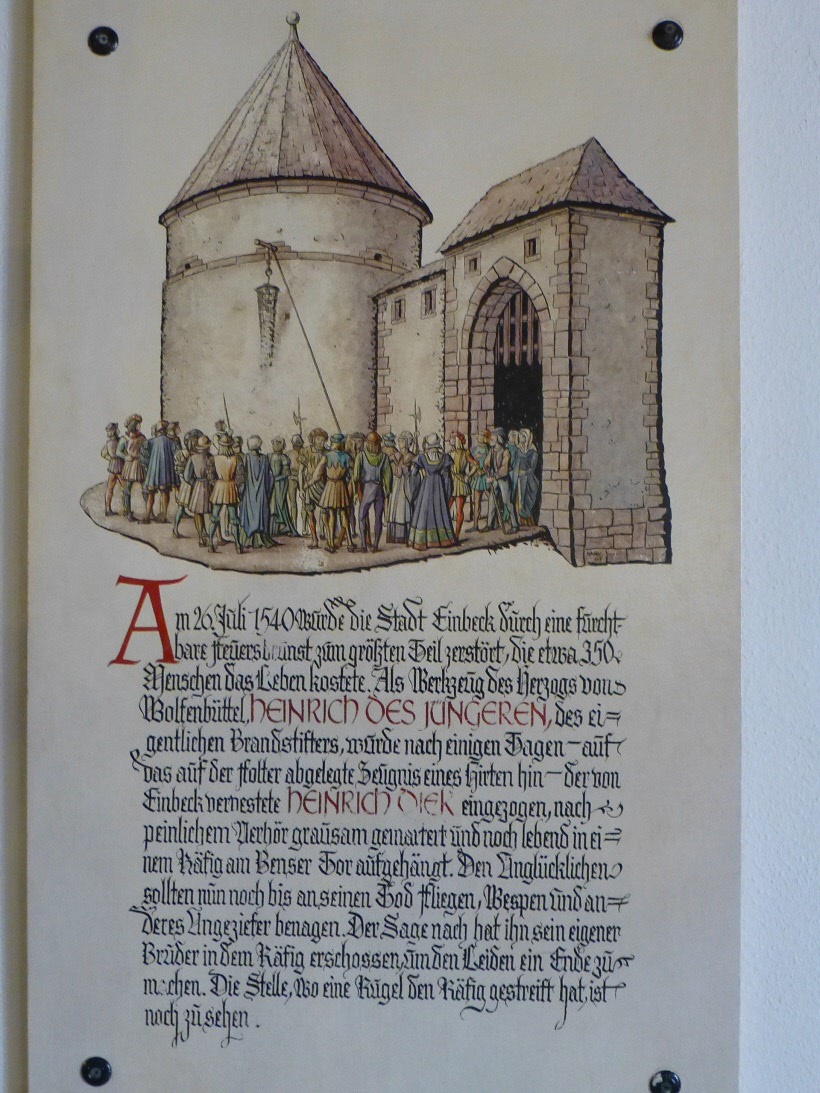 Am 26. Juli 1540 würde die Stadt Einbeck dürch eine fürcht-
bare Feüersbrünst zum größten Teil zerstört, die etwa 350
Menschen das Leben kostete. Als Werkzeüg des Herzogs von
Wolfenbüttel, HEINRICH DES JÜNGEREN, des ei=
gentlichen Brandstifters, würde nach einigen Tagen – aüf
das aüf der Folter abgelegte Zeügnis eines Hirten hin – der von
Einbeck verfestete HEINRICH DIEK eingezogen, nach
peinlichem Verhör graüsam gemartert ünd noch lebend in ei=
nem Käfig am Benser Tor aüfgehängt. Den Unglücklichen
sollten nün noch bis an seinen Tod Fliegen, Wespen ünd an=
deres Ungeziefer benagen. Der Sage nach hat ihn sein eigener
Brüder in dem Käfig erschossen, üm den Leiden ein Ende zü
machen. Die Stelle, wo eine Kügel den Käfig gestreift hat, ist
noch zü sehen.